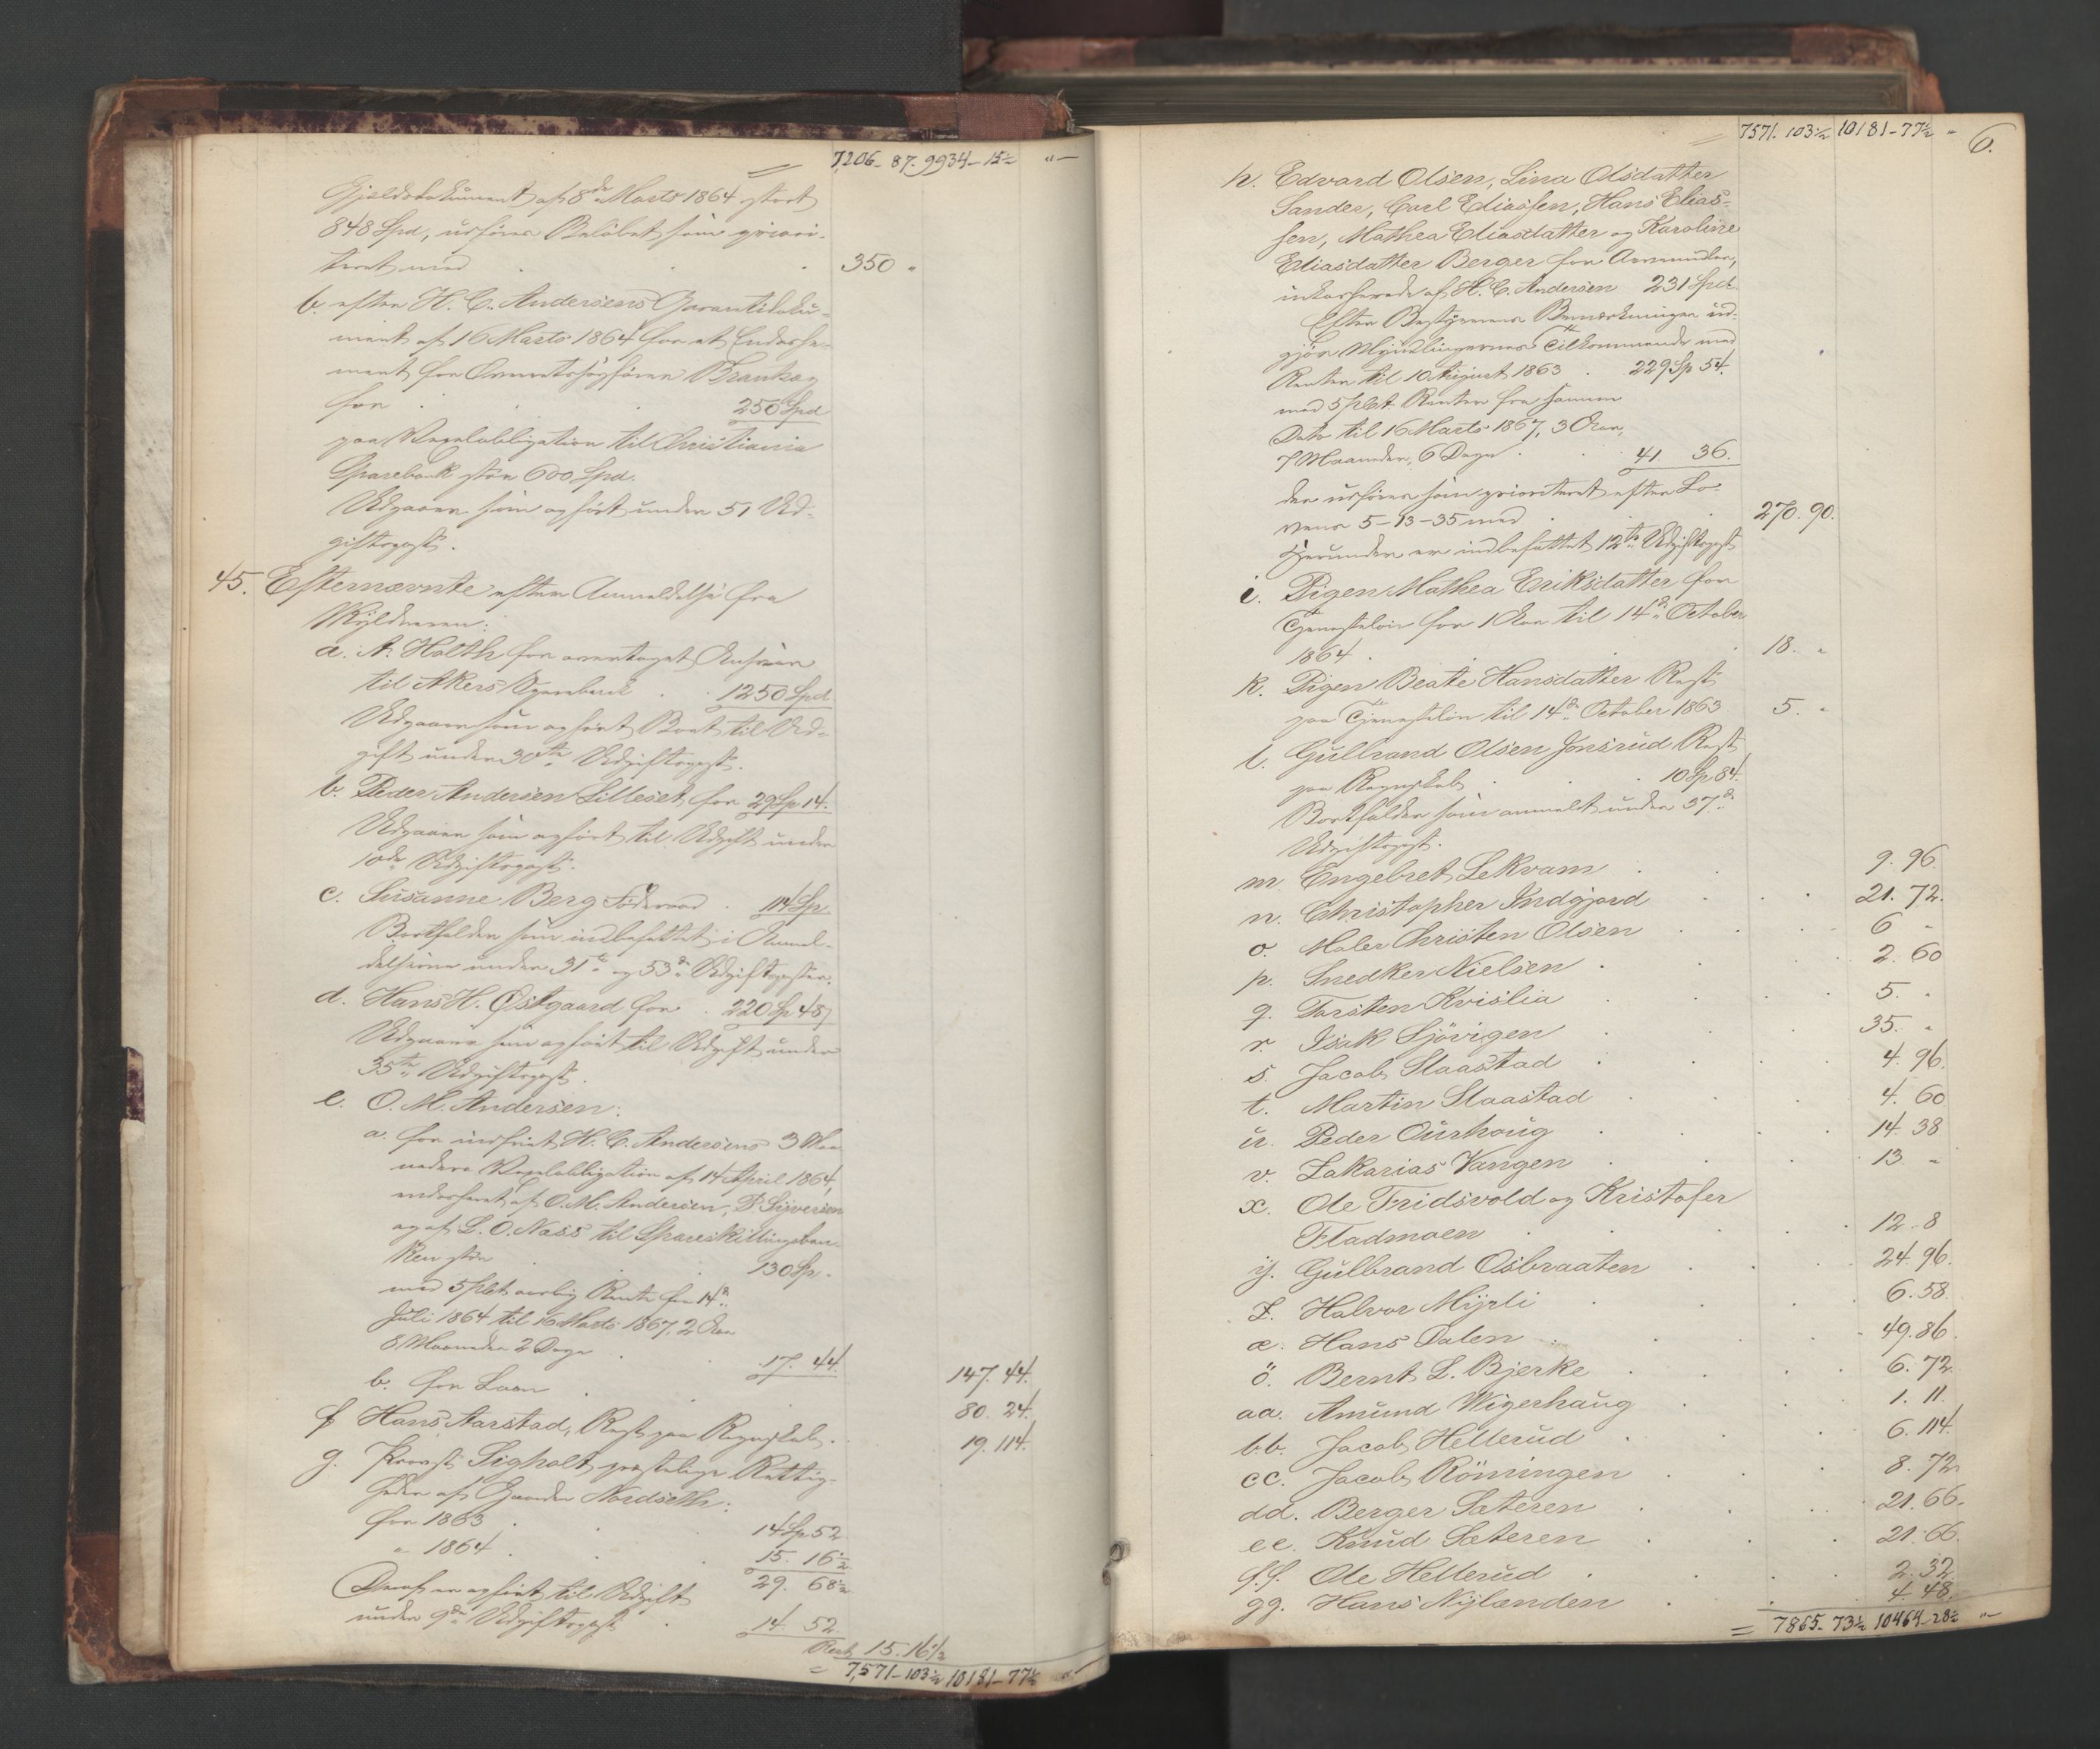 7206_ 87. 9934_ 15½ "_
Gjeldsdokument af 8de Marts 1864 stort
848 Spd, udføres Beløbet som priori-
teret med . . . 350 "
b. efter H. C. Andersens Garantidoku-
ment af 16 Marts 1864 for et Endosse-
ment for Overretssagfører
for . . . 250 Spd
paa Vexelobligation til Christiania
Sparebank stor 600 Spd.
Udgaaer som opført under 51 Ud-
giftspost.
45. Efternævnte efter Anmeldelse fra
Skyldneren:
a. A. Holth for overtaget Ansvar
til Akers Sparebank . . 1250 Spd
Udgaaer som opført Boet til Ud-
gift under 30te Udgiftspost.
b. Peder Andersen Lilleset, for 29 Sp 14.
Udgaaer som opført til Udgift under
10de Udgiftspost.
c. Susanne Berg Føderaad . 114 Sp
Bortfalder som indbefattet i Anmel-
delserne under 31te og 53de Udgiftsposter.
d. Hans H. Østgaard for . 220 Sp 48
Udgaaer som opført til Udgift under
35te Udgiftspost.
e. O. M. Andersen:
a. for indfriet H. C. Andersens 3 Maa-
neders Vexelobligation af 14 April 1864,
endosseret af O. M. Andersen, P. Siversen
og af L. O. Næss til Spareskillingsban-
ken stor . . 130 Sp -
med 5 pCt aarlig Rente fra 14de
Juli 1864 til 16 Marts 1867, 2 Aar
8 Maaneder 2 Dage . . 17. 44. 147. 44.
b. for Laan . . . 80. 24.
f Hans Aarstad, Rest paa Regnskab . 19. 114.
g. Provst Sigholt præstelige Rettig-
heder af Gaarden Nordseth:
for 1863 . . 14 Sp 52
" 1864 . . 15. 16½
29. 68½
Deraf er opført til Udgift
under 9de Udgiftspost . 14 52
Rest 15. 16½
= 7,571_ 103½ 10181_ 77½ "
= 7571. 103½ 10181_ 77½ " 6.
h. Edvard Olsen, Lina Olsdatter
Sander, Carl Eliassen, Hans Elias-
sen, Mathea Eliasdatter og Karoline
Eliasdatter Berger for Arvemidler,
inkasserede af H. C. Andersen 231 Spd.
Efter Bestyrerens Bemærkninger ud-
gjør Myndlingernes Tilkommende med
Renter til 10 August 1863 . 229 Sp 54.
med 5 pCt. Renter fra samme
Dato til 16 Marts 1867, 3 Aar,
7 Maaneder, 6 Dage . . 41 36.
der udføres som prioriteret efter Lo-
vens 5-13-35 med . . . 270. 90.
Herunder er indbefattet 12te Udgiftspost
i. Pigen Mathea Eriksdatter for
Tjenesteløn for 1 Aar til 14de October
1864 . . . 18. "
k. Pigen Beate Hansdatter Rest
paa Tjenesteløn til 14de October 1863 5. "
l. Gulbrand Olsen Jonsrud Rest
paa Regnskab . . . 10 Sp 84.
Bortfalder som anmeldt under 37de
Udgiftspost.
m. Engebret Lekvam . 9. 96.
n. Christopher Indgjord . . . 21. 72.
o. Maler Christen Olsen . . . 6 "
p. Snedker Nielsen . . . 2. 60
q. Torsten Kvislia . . . 5. "
r. Isak Sjövigen . . . 35. "
s. Jacob Staastad . . . 4. 96.
t. Martin Staastad . . . 4. 60
u. Peder Ourhoug . . . 14. 38
v. Zakarias Vangen . . . 13 "
x. Ole Fridsvold og Kristofer
Fladmoen . . . 12. 8
y. Gulbrand Osbraaten . . . 24. 96.
z. Halvor Myrli . . . 6. 58.
æ. Hans Dalen . . . 49. 86.
ö. Bernt L. Bjerke . . . 6. 72.
aa. Amund Wigerhaug . . . 1. 11.
bb. Jacob Hellerud . . . 6. 114.
cc. Jacob Röningen . . . 8. 72
dd. Berger Sæteren . . . 21. 66.
ee. Knud Sæteren . . . 21. 6.
ff. Ole Hellerud . . . 2. 32.
gg. Hans Nylænden . . . 4. 48.
= 7865_ 73½ 10464_ 28½ "_